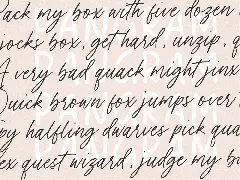 Pack my box with five dozen
jocks box, get hard, unzip, q
A very bad quack might jinx
Quick brown fox jumps over
by halfling dwarves pick qua
ex quest wizard, judge my bo
PANGRAM
PANGRAM
PANGRAM
PANGRAM